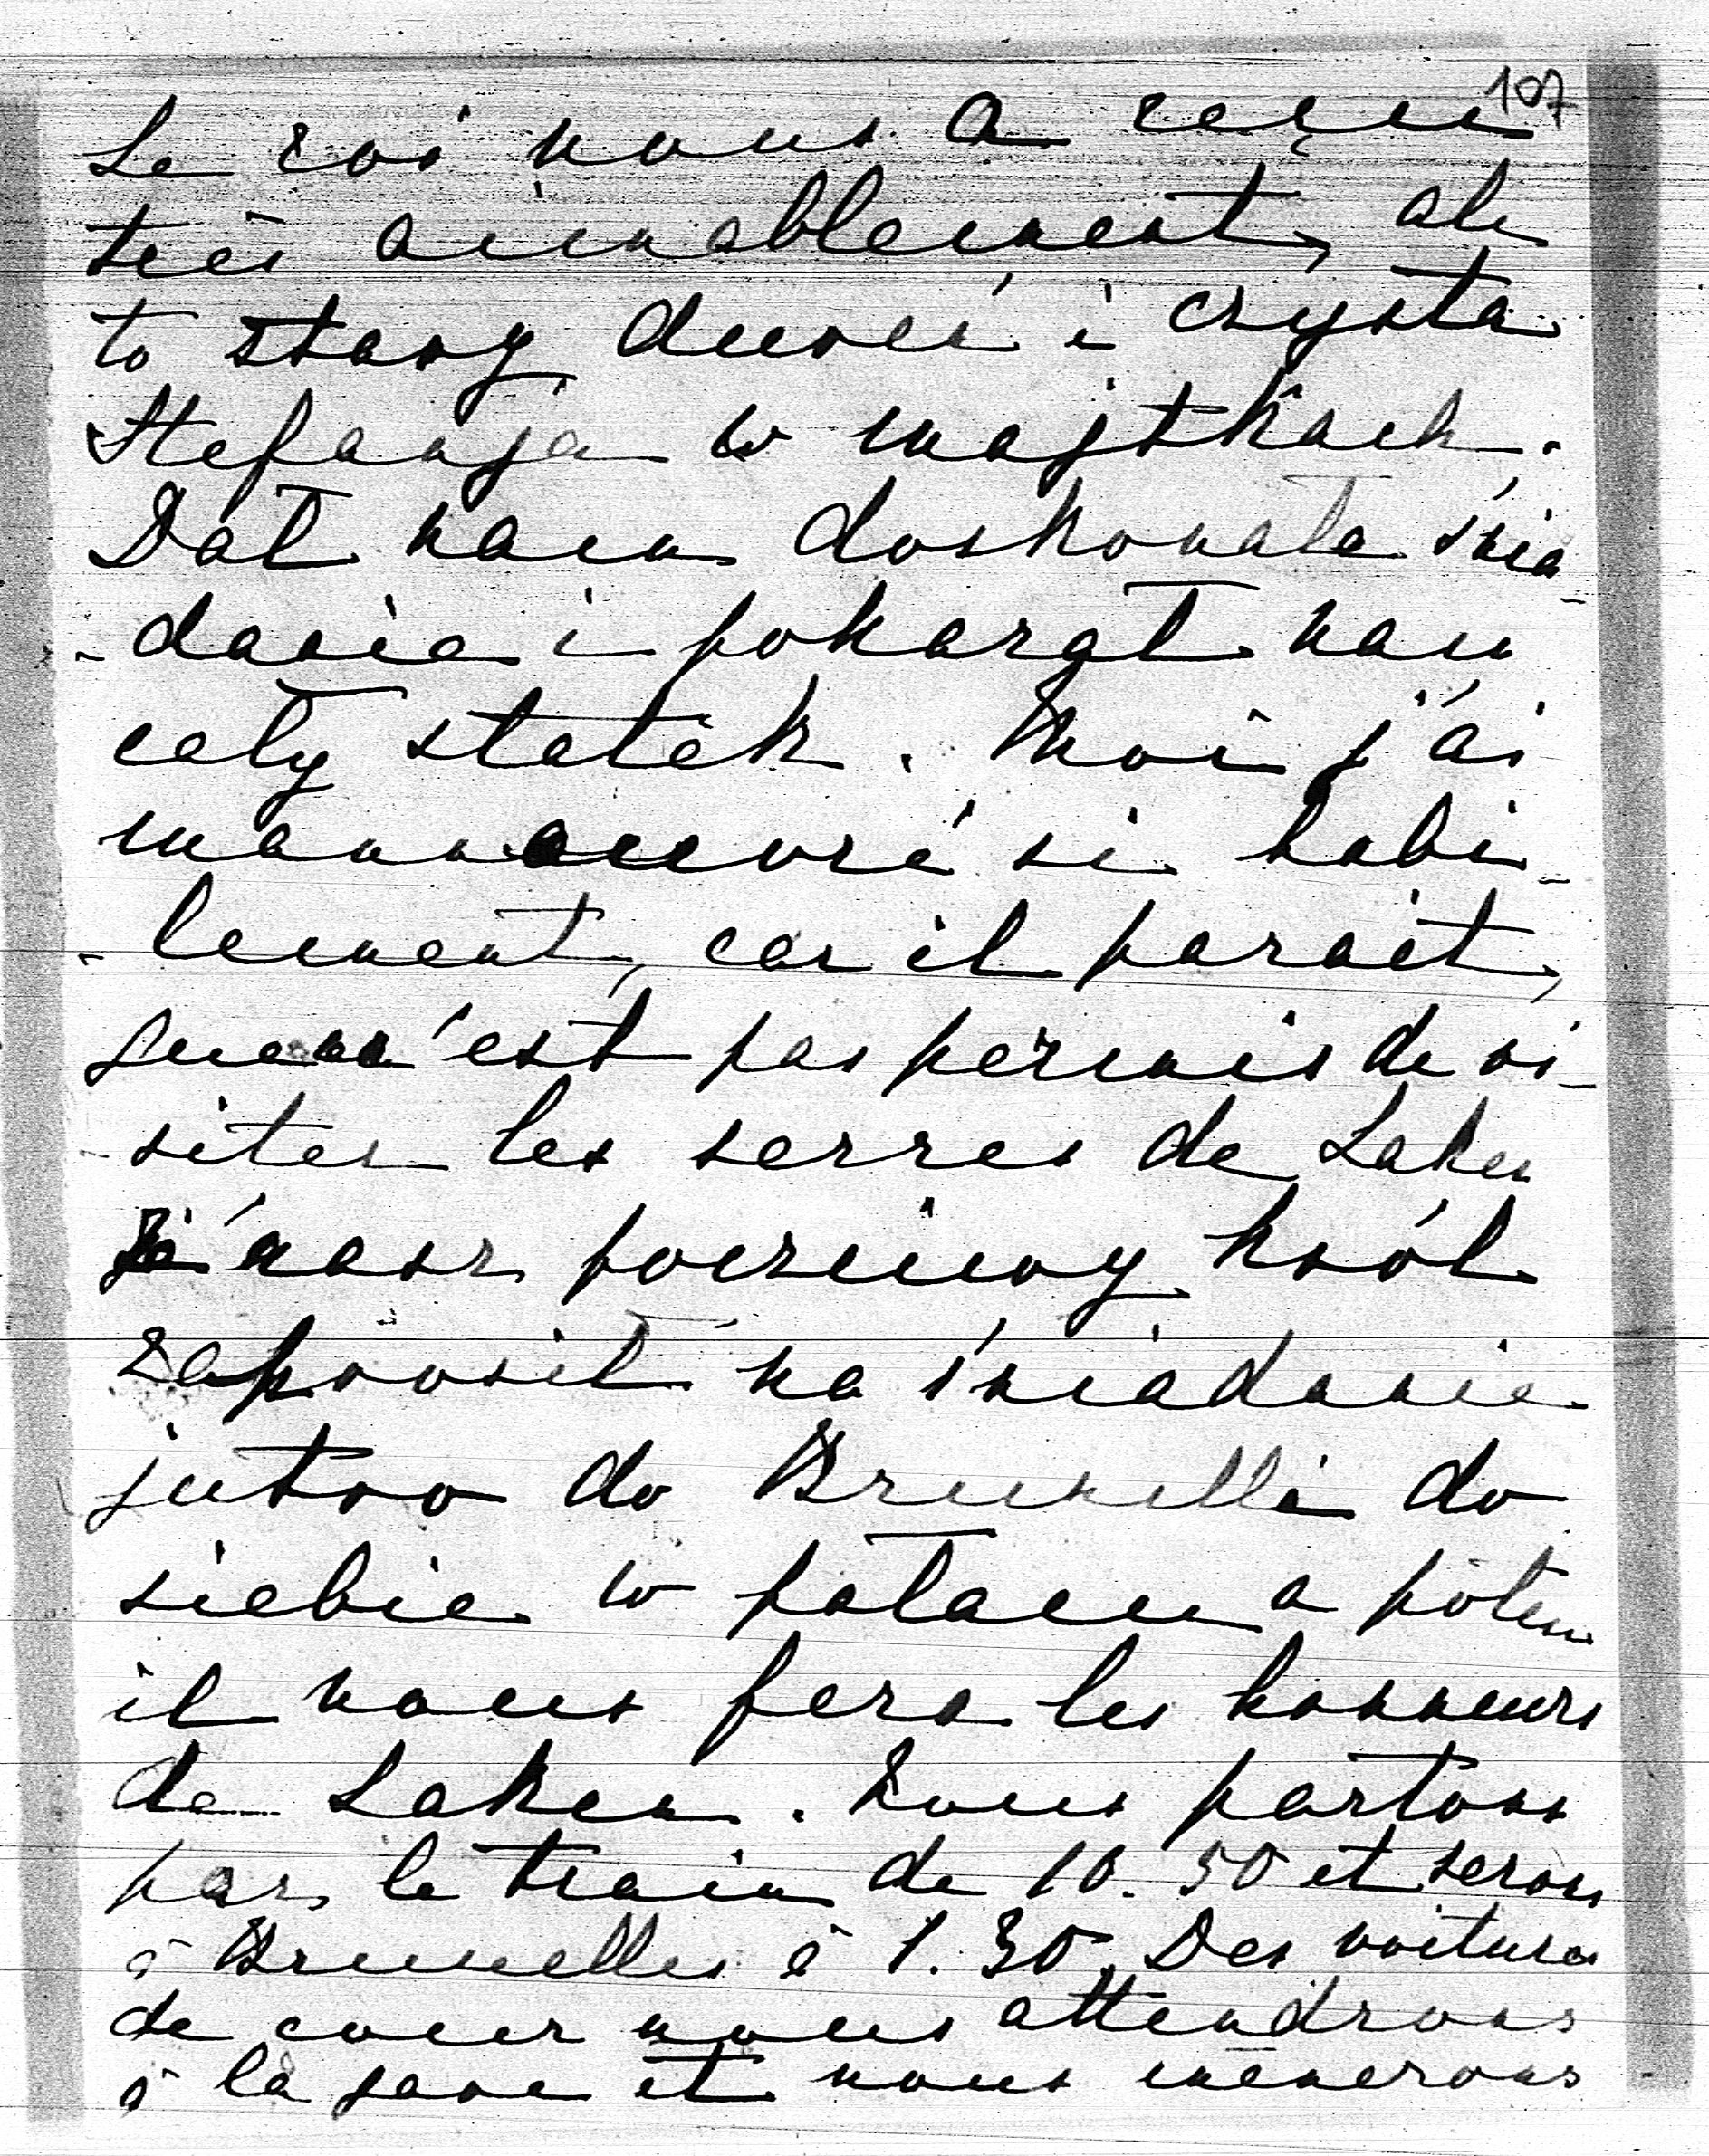 107
Le roi nous a reçu
très aimablement, ale
to stary dureń i czysta
Stefanja w majtkach.
Dał nam doskonałe śnia-
-danie i pokazał nam
cały statek. Moi j'ai
manoeuvré si habi-
-lement, car il parait,
que n'est pas permis de vi-
-siter les serres de Laken
że nasz poczciwy król
zaprosił na śniadanie
jutro do Brukselli do
siebie w pałacu a potem
il nous fera les honneurs
de Laken. Nous partons
par le train de 10.50 et serons
à Bruxelles à 1.30. Des voitures
de cour nous attendrons
à la gare et nous mènerons